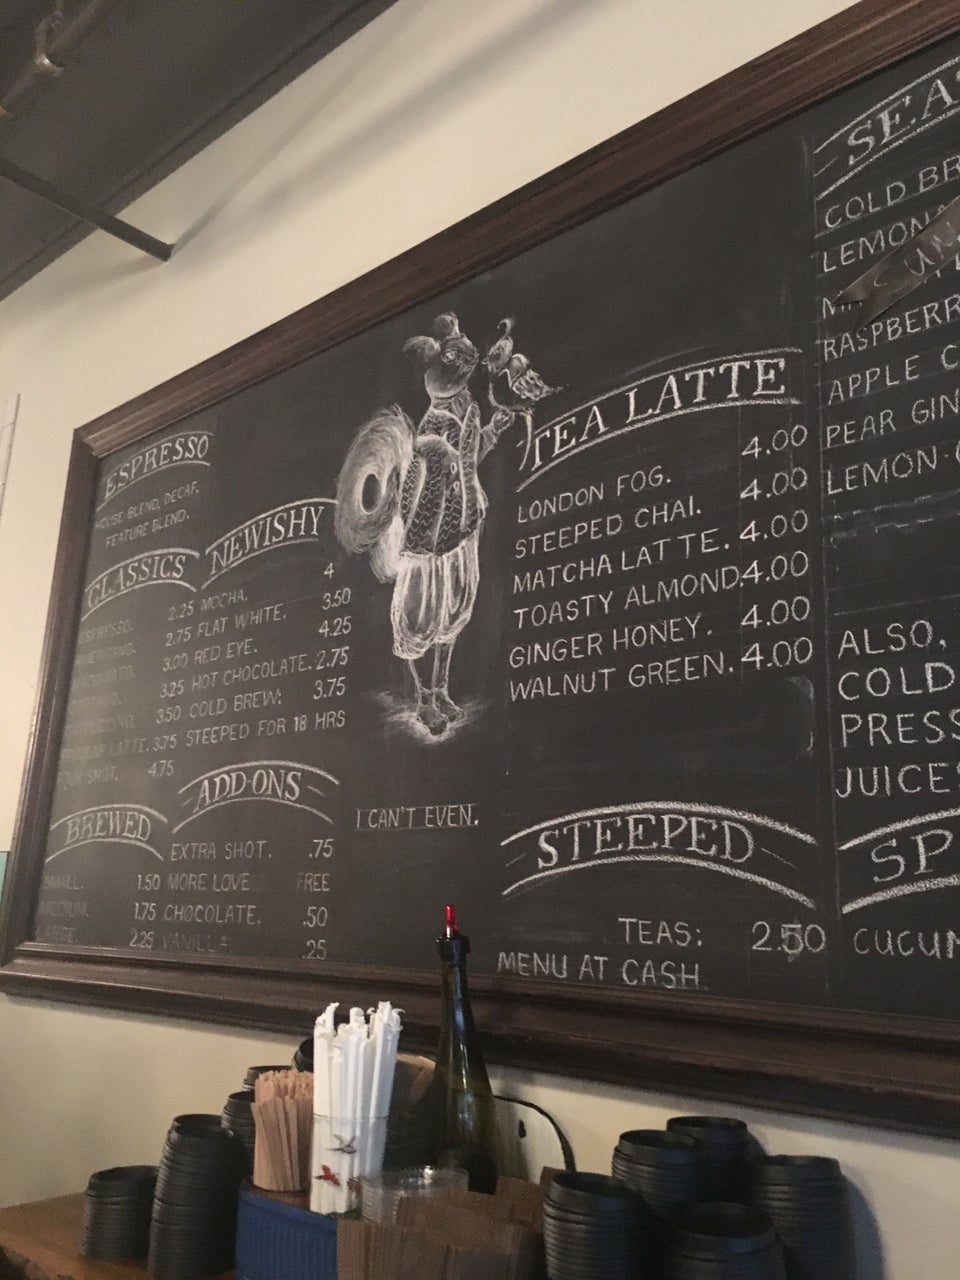 ESPRESSO
HOUSE BLEND, DECAF,
FEATURE BLEND.
CLASSICS
ESPRESSO. 2.25
AMERICANO. 2.75
3.00
3.25
3.50
LATTE. 3.75
SHOT. 4.75
BREWED
SMALL. 1.50
MEDIUM. 1.75
LARGE. 2.25
NEWISHY
MOCHA. 4
FLAT WHITE. 3.50
RED EYE. 4.25
HOT CHOCOLATE. 2.75
COLD BREW: 3.75
STEEPED FOR 18 HRS
ADD-ONS
EXTRA SHOT. .75
MORE LOVE FREE
CHOCOLATE. .50
VANILLA. .25
I CAN'T EVEN.
TEA LATTE
LONDON FOG. 4.00
STEEPED CHAI. 4.00
MATCHA LATTE. 4.00
TOASTY ALMOND. 4.00
GINGER HONEY. 4.00
WALNUT GREEN. 4.00
STEEPED
TEAS: 2.50
MENU AT CASH
SEAS
COLD BR
LEMONA
RASPBERR
APPLE C
PEAR GIN
LEMON-
ALSO,
COLD
PRESS
JUICES
SP
CUCUM